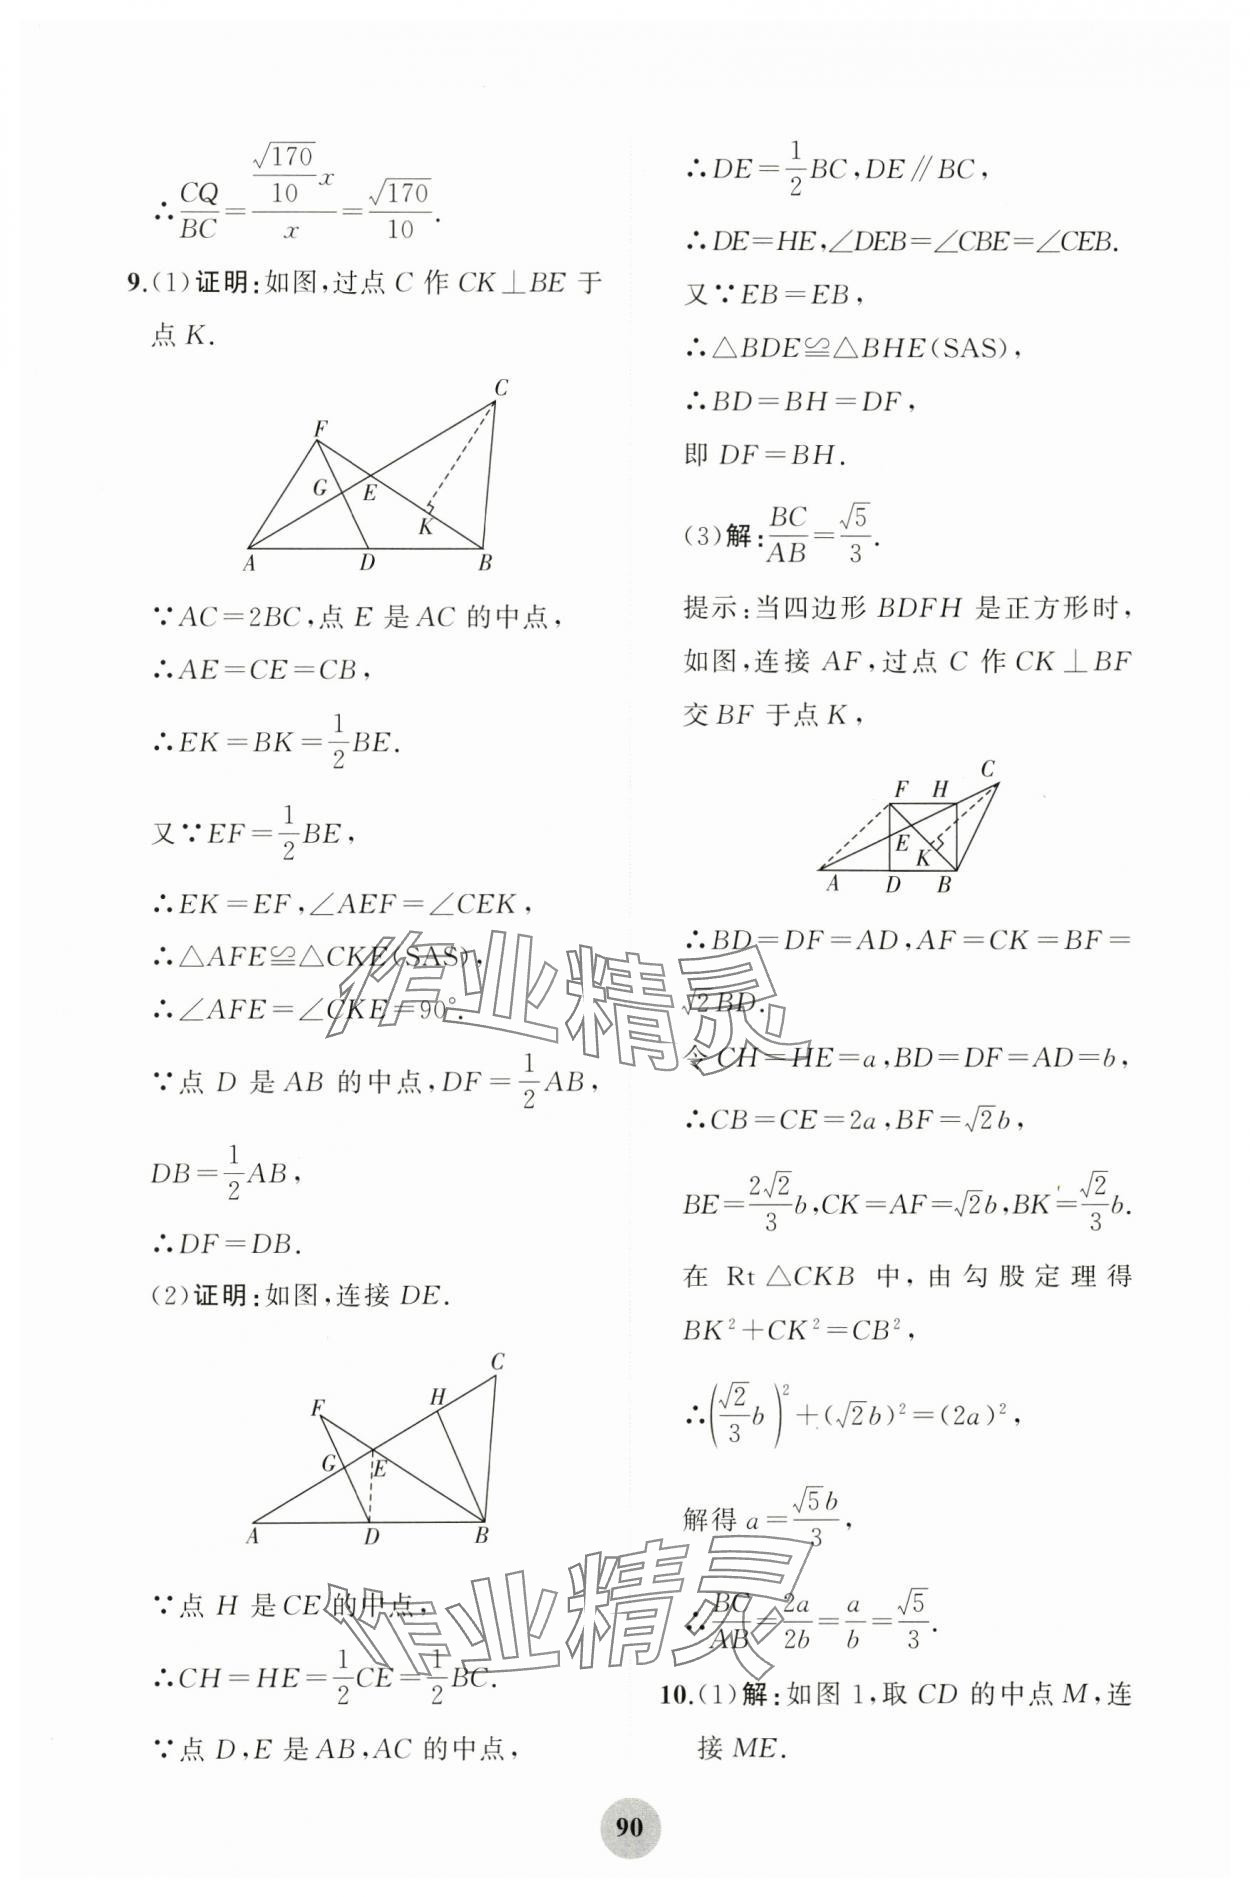 ∴CQ/BC=(√170/10 x)/x=√170/10.
9.(1)证明:如图,过点 C 作 CK⊥BE 于
点 K.
C
F
G E
K
A D B
∵AC=2BC,点 E 是 AC 的中点,
∴AE=CE=CB,
∴EK=BK=1/2BE.
又∵EF=1/2BE,
∴EK=EF,∠AEF=∠CEK,
∴△AFE≌△CKE(SAS),
∴∠AFE=∠CKE=90°.
∵点 D 是 AB 的中点,DF=1/2AB,
DB=1/2AB,
∴DF=DB.
(2)证明:如图,连接 DE.
C
H
F
G E
A D B
∵点 H 是 CE 的中点,
∴CH=HE=1/2CE=1/2BC.
∵点 D,E 是 AB,AC 的中点,
∴DE=1/2BC,DE∥BC,
∴DE=HE,∠DEB=∠CBE=∠CEB.
又∵EB=EB,
∴△BDE≌△BHE(SAS),
∴BD=BH=DF,
即 DF=BH.
(3)解:BC/AB=√5/3.
提示:当四边形 BDFH 是正方形时,
如图,连接 AF,过点 C 作 CK⊥BF
交 BF 于点 K,
C
F H
E
K
A D B
∴BD=DF=AD,AF=CK=BF=
√2BD.
令 CH=HE=a,BD=DF=AD=b,
∴CB=CE=2a,BF=√2b,
BE=2√2/3b,CK=AF=√2b,BK=√2/3b.
在 Rt△CKB 中,由勾股定理得
BK²+CK²=CB²,
∴(√2/3b)²+(√2b)²=(2a)²,
解得 a=√5b/3,
∴BC/AB=2a/2b=a/b=√5/3.
10.(1)解:如图 1,取 CD 的中点 M,连
接 ME.
作业精灵
作业精灵
90